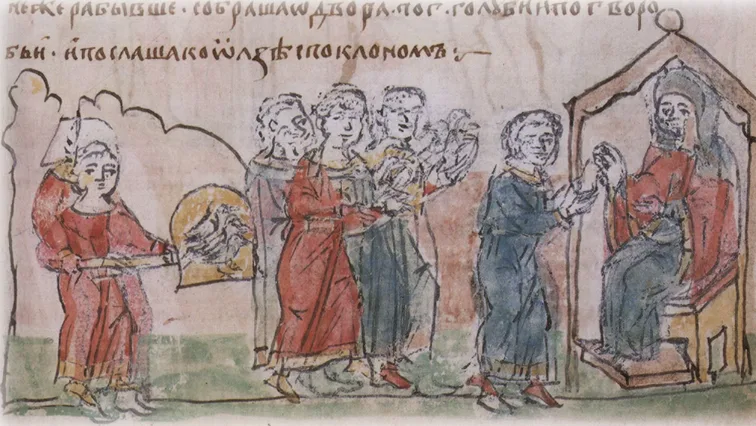 же ра бывше · собраша ѿ двора · по г · голоби и по г воро
бьи · и послаша ко ѿлзѣ с поклономъ :~